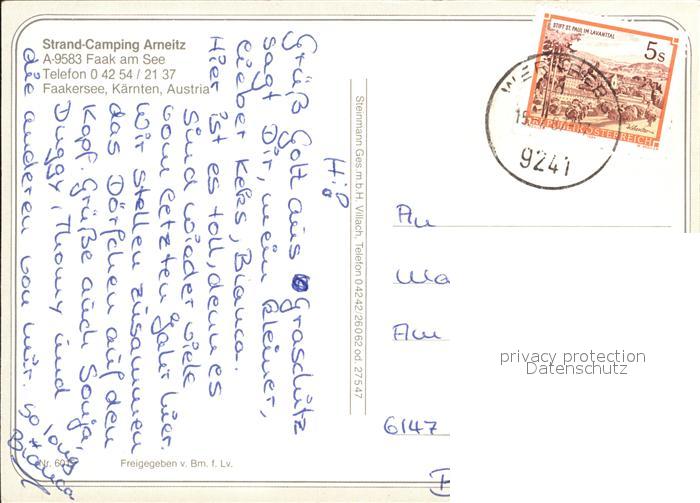 Strand-Camping Arneitz
A-9583 Faak am See
Telefon 0 42 54 / 21 37
Faakersee, Kärnten, Austria
Hi!
Grüß Gott aus Graschitz
sagt Dir, mein kleiner,
lieber Keks, Bianca.
Hier ist es toll, denn es
sind wieder viele
vom letzten Jahr hier.
Wir stellen zusammen
das Dörfchen auf den
Kopf. Grüße auch Sonja,
Duggy, Thomy und
die anderen von mir. So long
Bianca
Nr. 601
Freigegeben v. Bm. f. Lv.
Steinmann Ges.m.b.H. Villach, Telefon 04242/26062 od. 27547
STIFT ST. PAUL IM LAVANTTAL
5s
REPUBLIK ÖSTERREICH
WERNBERG
15.
9241
An
Ma
Am
6147
privacy protection
Datenschutz